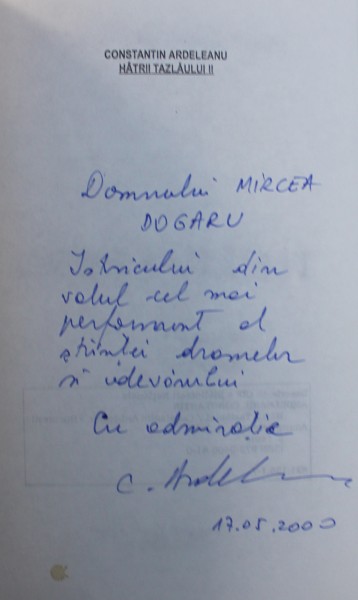 CONSTANTIN ARDELEANU
HÂTRII TAZLĂULUI II
Domnului MIRCEA
DOGARU
Istoricului din
valul cel mai
performant al
științei dramelor
și adevărului
Cu admirație
C. Ardel
17.05.2000